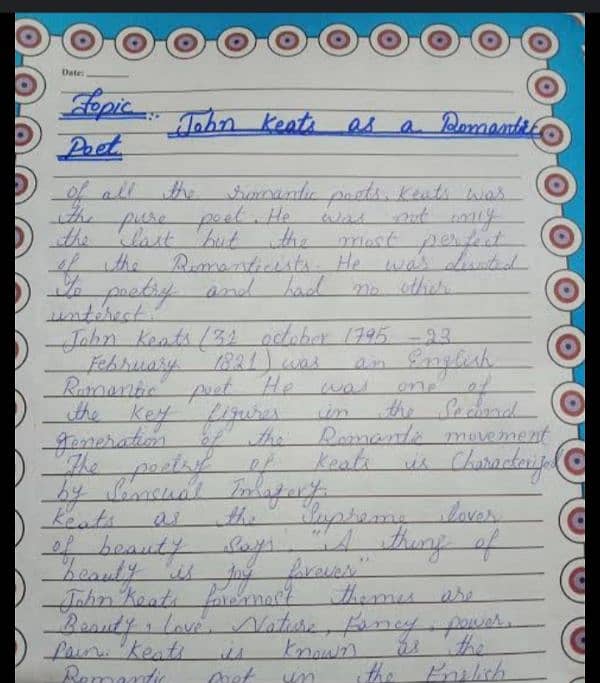 Date:
Topic :- John Keats as a Romantic
Poet
of all the romantic poets. Keats was
the pure poet. He was not only
the last but the most perfect
of the Romanticists. He was devoted
to poetry and had no other
interest.
John Keats (31 october 1795 - 23
February 1821) was an English
Romantic poet. He was one of
the key figures in the Second
generation of the Romantic movement
The poetry of Keats is Characterized
by Sensual Imagery.
Keats as the Supreme lover
of beauty Says. "A thing of
beauty is joy forever"
John Keats foremost themes are
Beauty, love, Nature, Fancy, power,
Pain. Keats is known as the
Romantic poet in the English